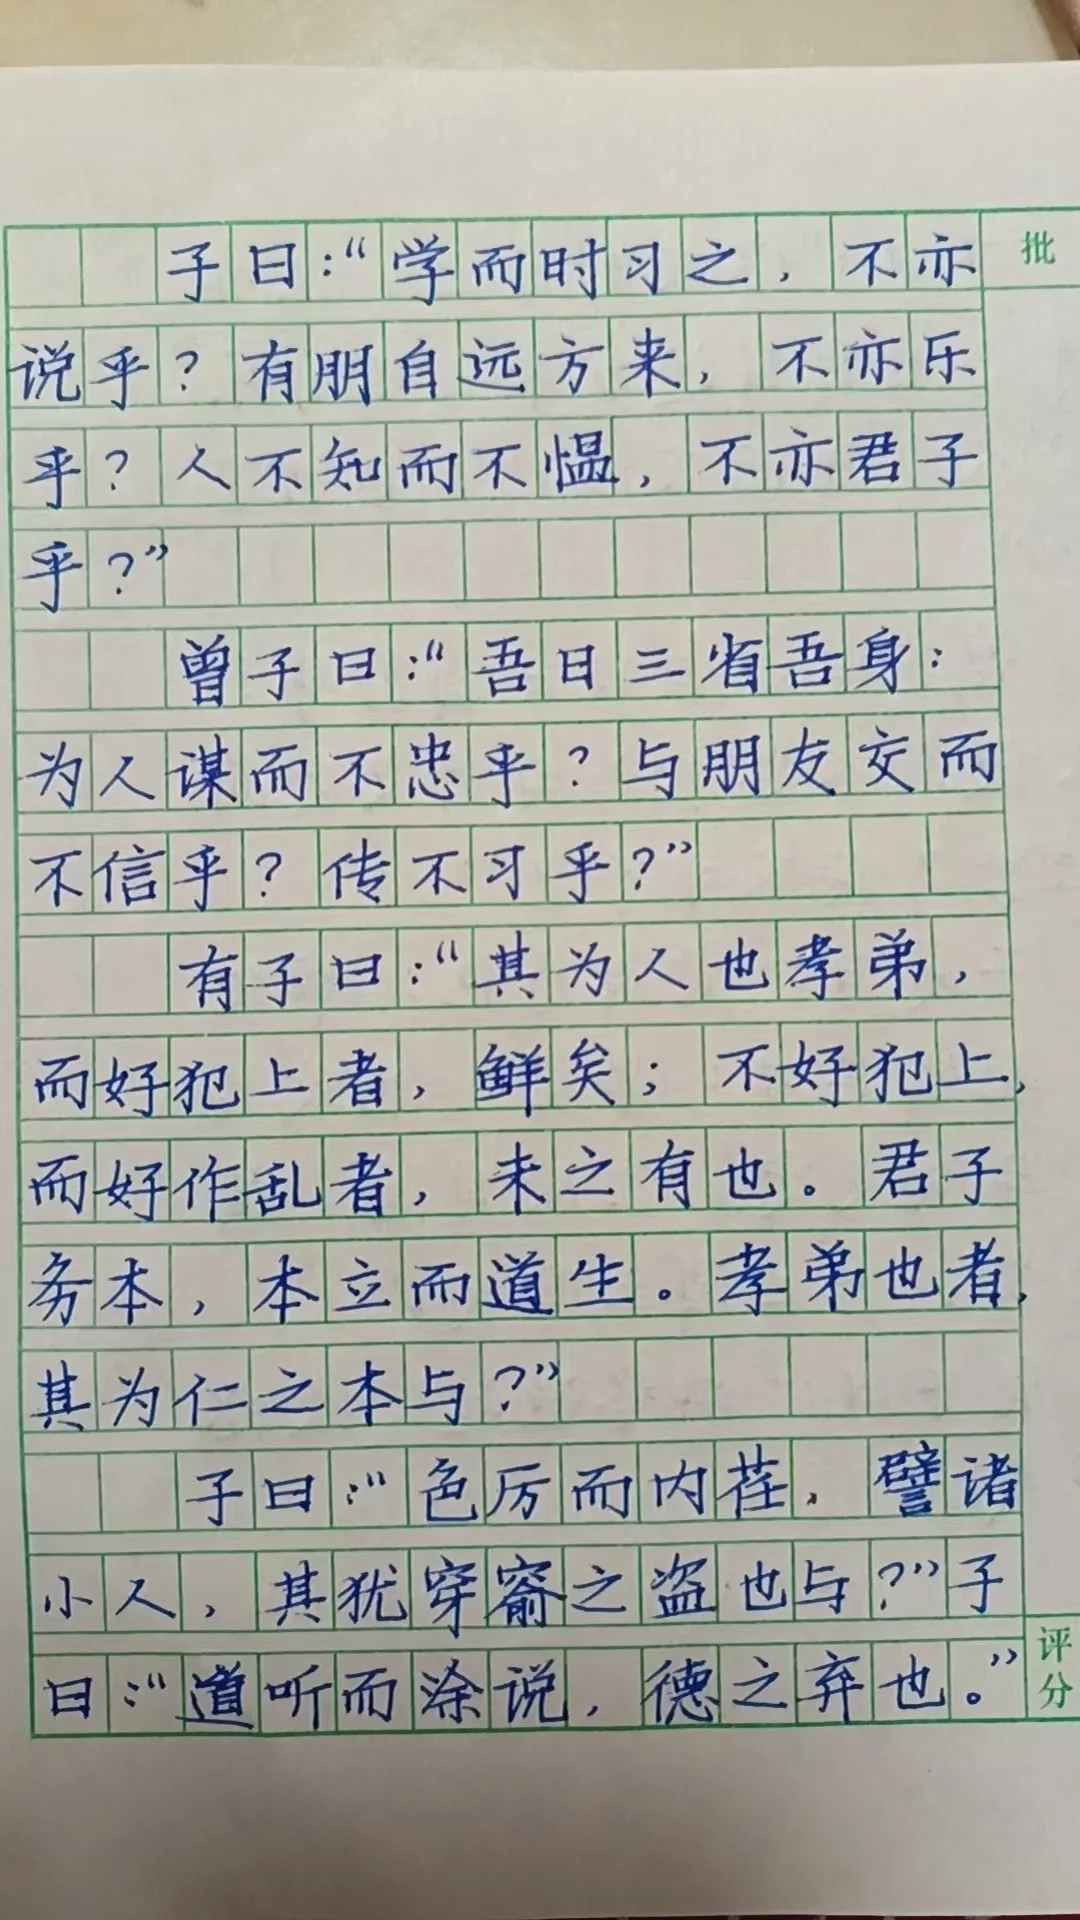 子曰：“学而时习之，不亦
批
说乎？有朋自远方来，不亦乐
乎？人不知而不愠，不亦君子
乎？”
曾子曰：“吾日三省吾身：
为人谋而不忠乎？与朋友交而
不信乎？传不习乎？”
有子曰：“其为人也孝弟，
而好犯上者，鲜矣；不好犯上，
而好作乱者，未之有也。君子
务本，本立而道生。孝弟也者，
其为仁之本与？”
子曰：“色厉而内荏，譬诸
小人，其犹穿窬之盗也与？”子
曰：“道听而涂说，德之弃也。”
评分